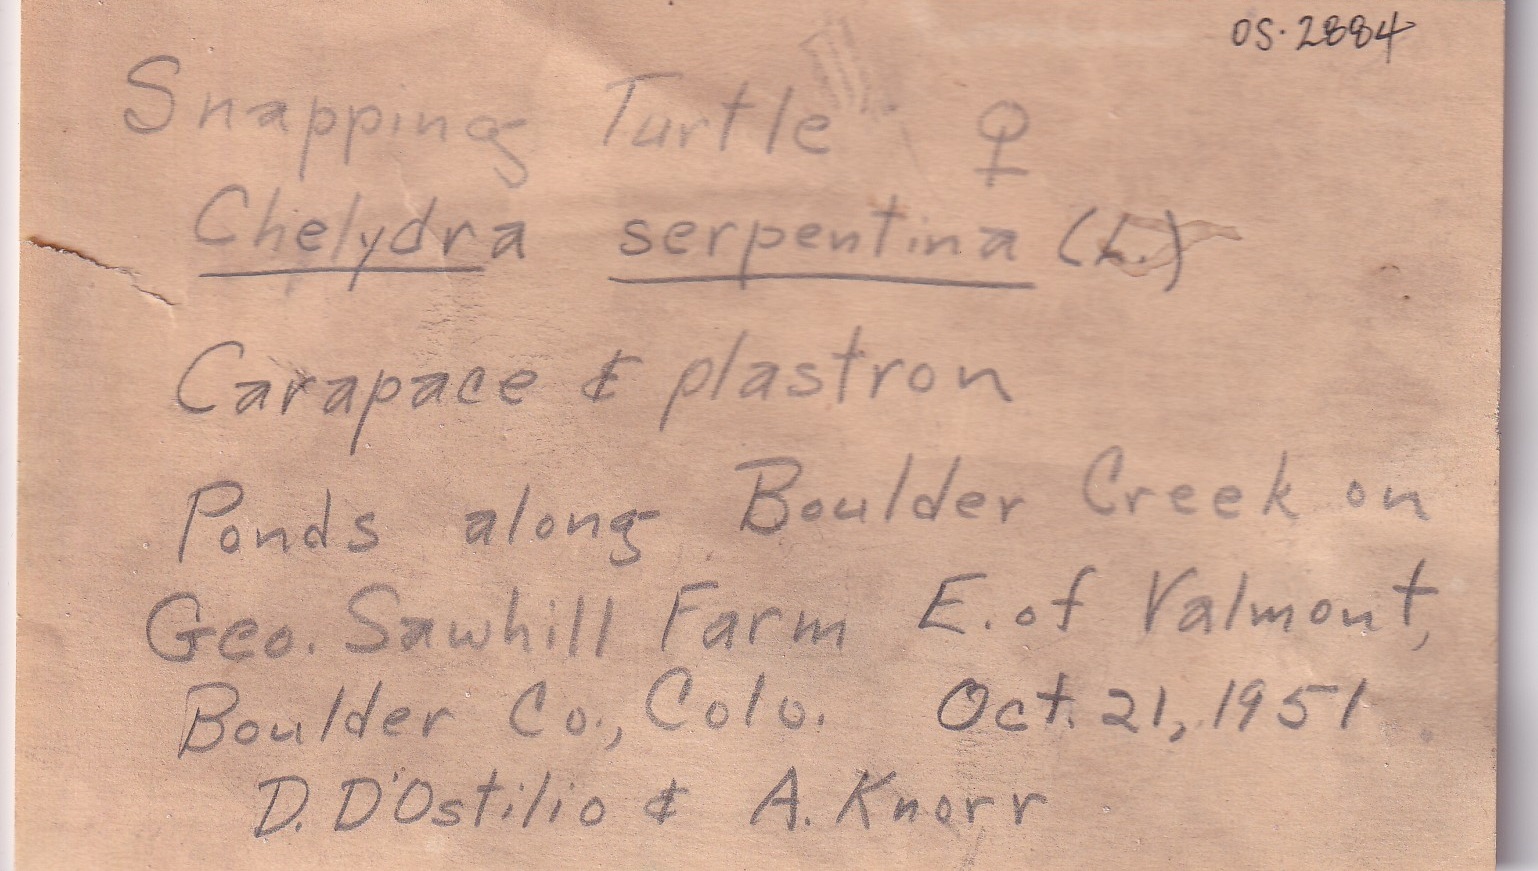 OS. 2884
Snapping Turtle ♀
Chelydra serpentina (L.)
Carapace & plastron
Ponds along Boulder Creek on
Geo. Sawhill Farm E. of Valmont,
Boulder Co., Colo. Oct. 21, 1951
D. D'Ostilio & A. Knorr